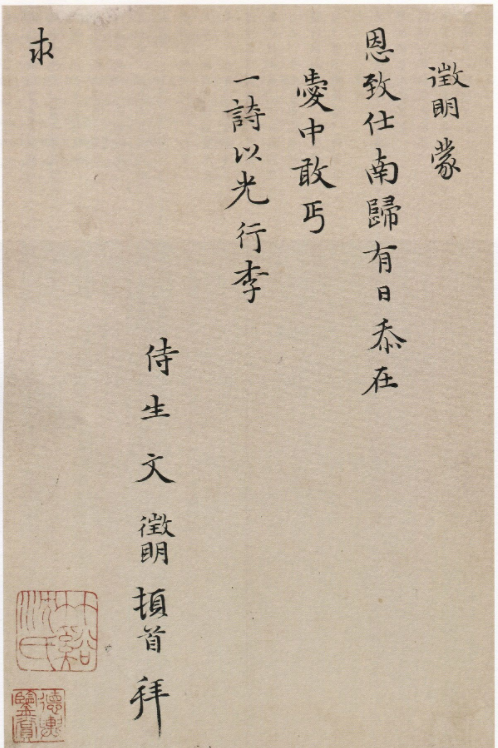 徵明蒙
恩致仕南歸有日忝在
愛中敢丐
一詩以光行李
侍生文徵明頓首拜
求